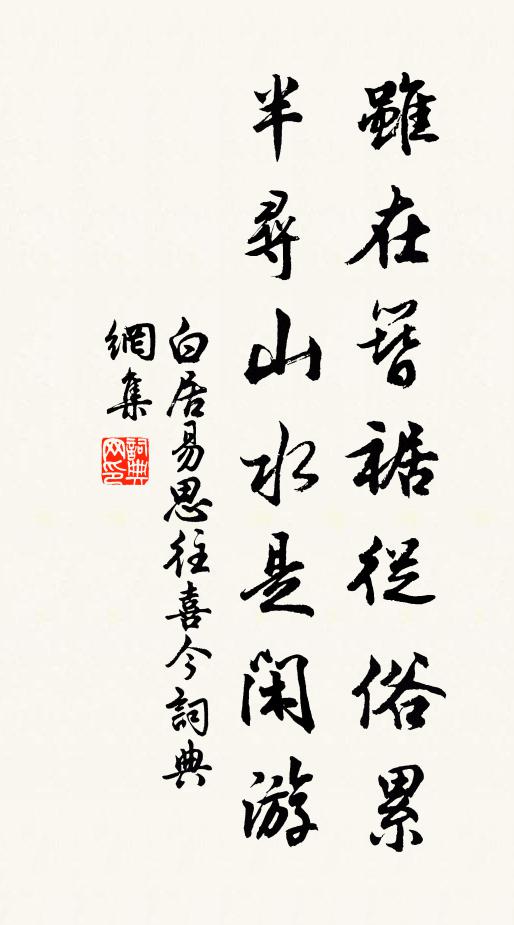 雖在簪裾從俗累
半尋山水是閑游
白居易思往喜今詞典
網集
詞典
网印